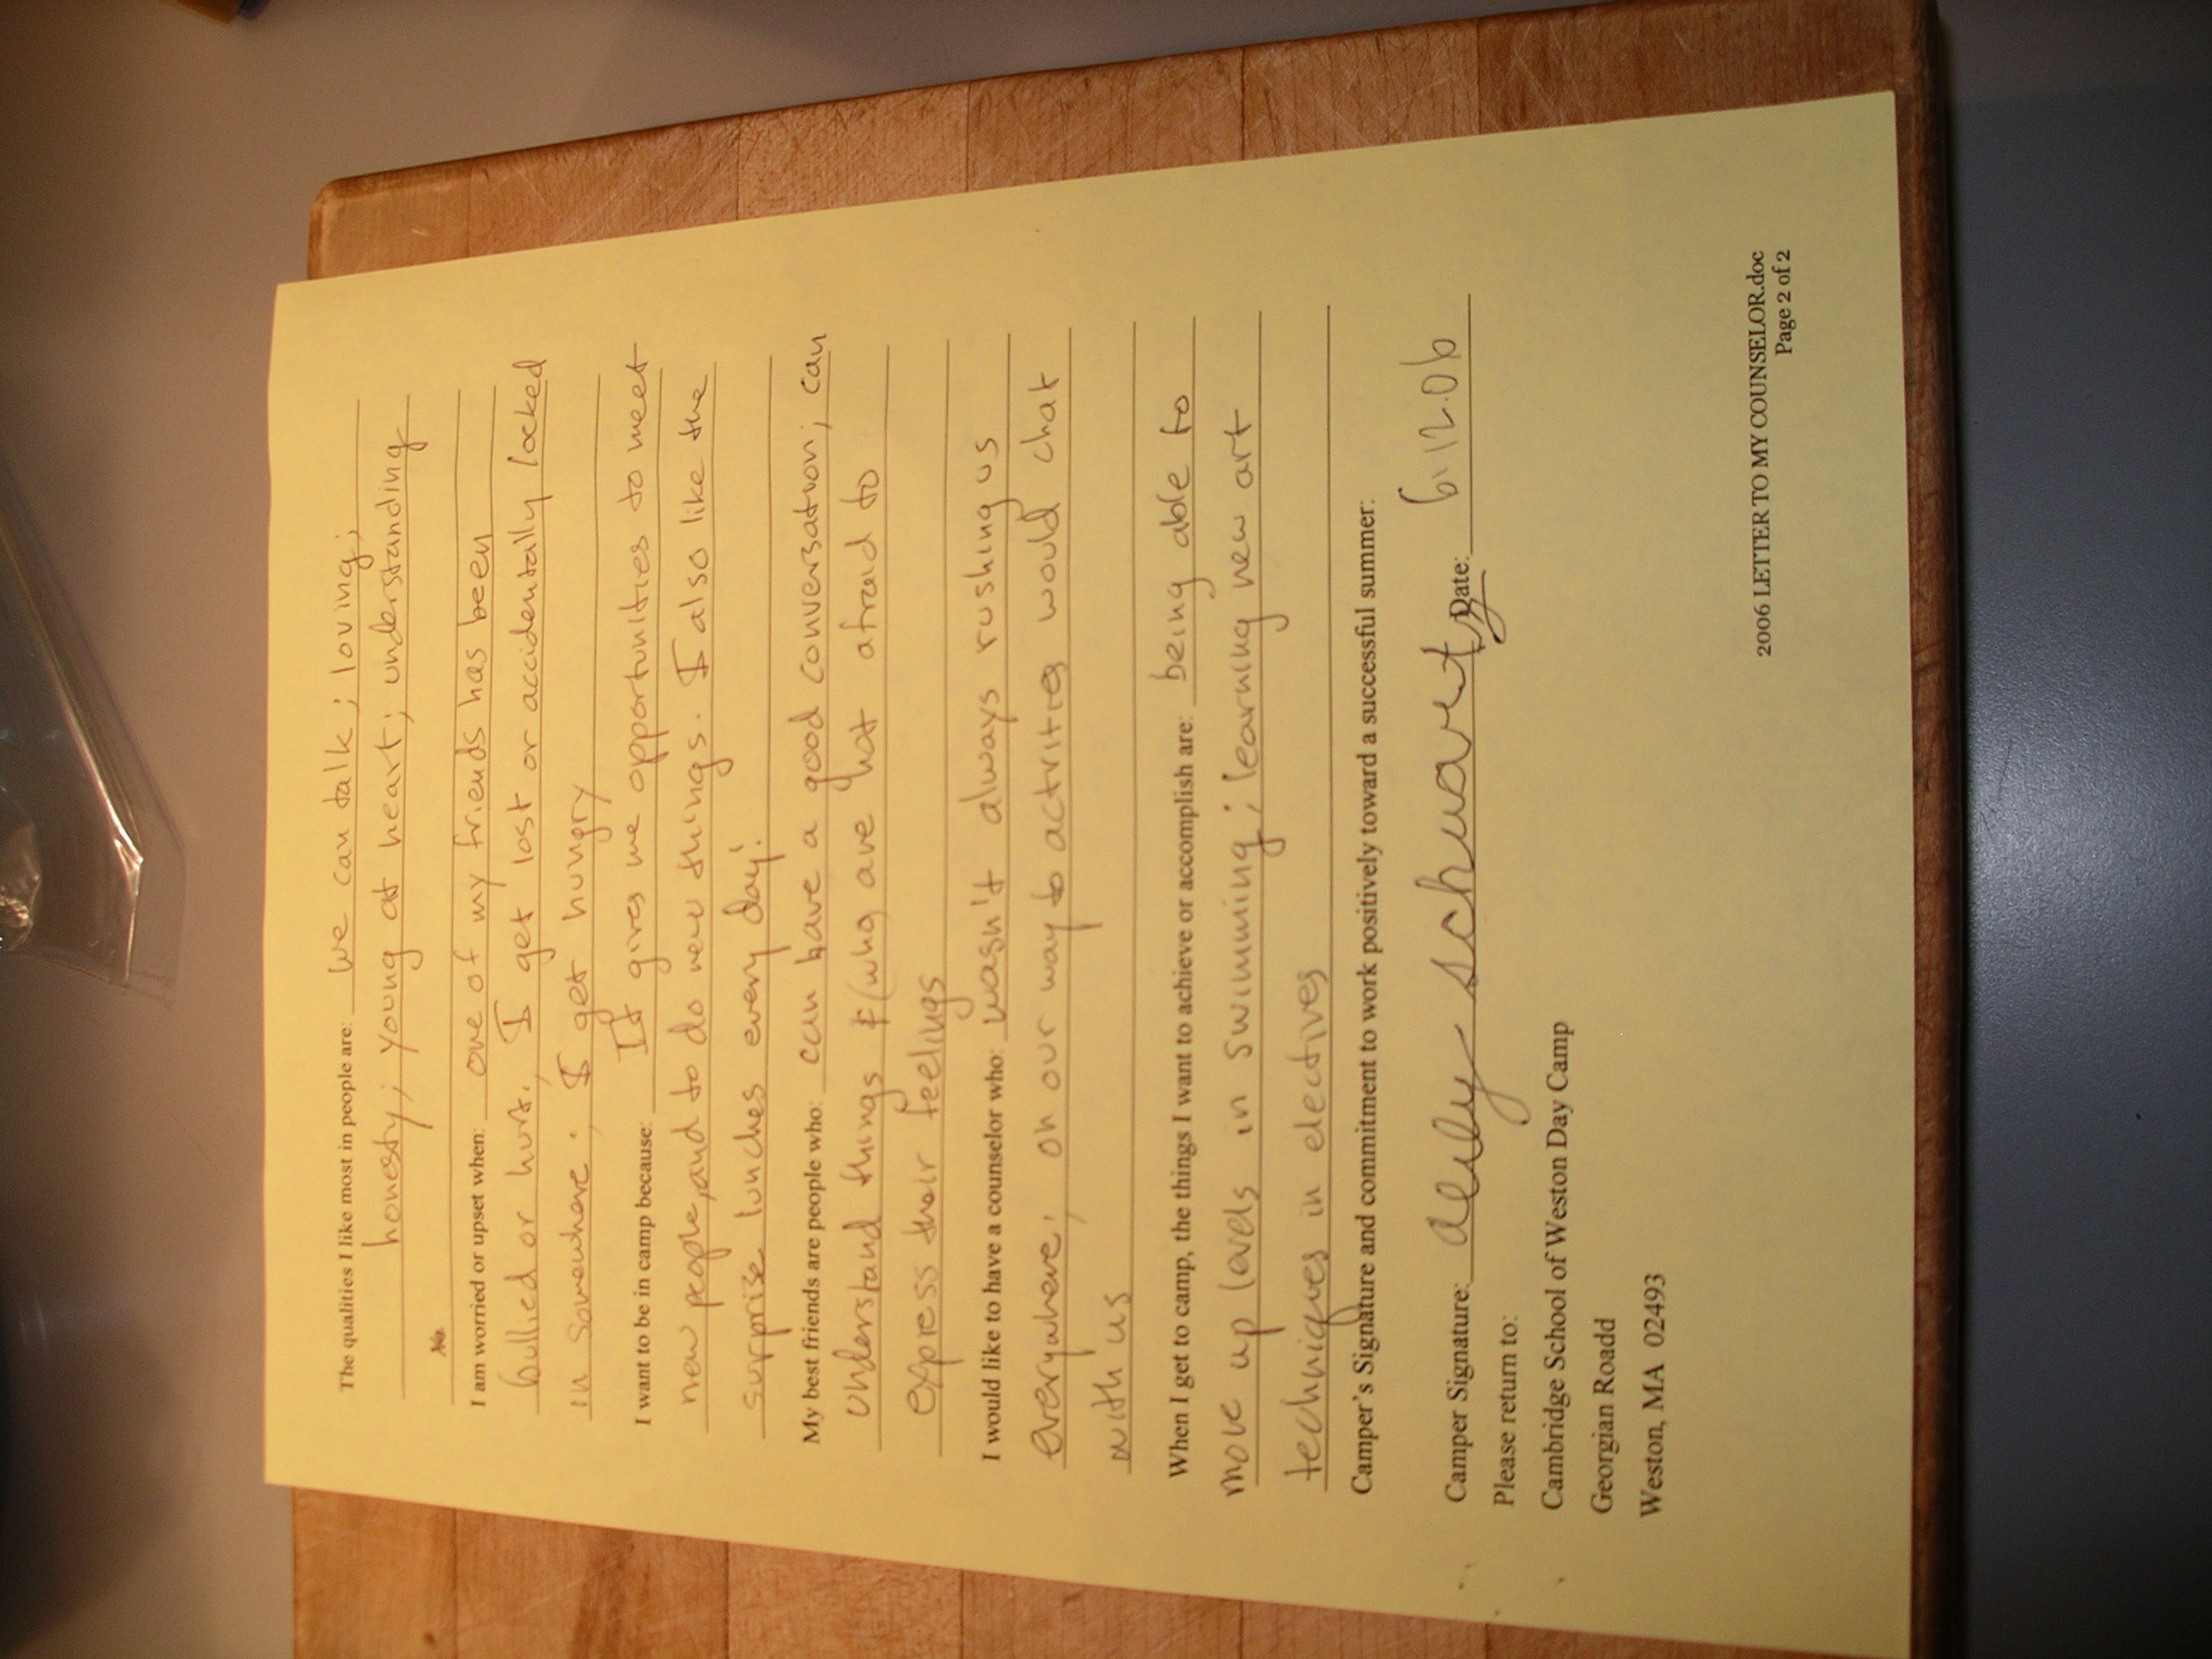 The qualities I like most in people are: we can talk; loving;
honesty; young at heart; understanding
I am worried or upset when: one of my friends has been
bullied or hurt; I get lost or accidentally locked
in somewhere; I get hungry
I want to be in camp because: It gives me opportunities to meet
new people, and to do new things. I also like the
surprise lunches every day!
My best friends are people who: can have a good conversation; can
understand things & (who are not afraid to
express their feelings
I would like to have a counselor who: wasn't always rushing us
everywhere; on our way to activities would chat
with us
When I get to camp, the things I want to achieve or accomplish are: being able to
move up levels in swimming; learning new art
techniques in electives
Camper's Signature and commitment to work positively toward a successful summer:
Camper Signature: schwartz Date: 6.12.06
Please return to:
Cambridge School of Weston Day Camp
Georgian Roadd
Weston, MA 02493
2006 LETTER TO MY COUNSELOR.doc
Page 2 of 2